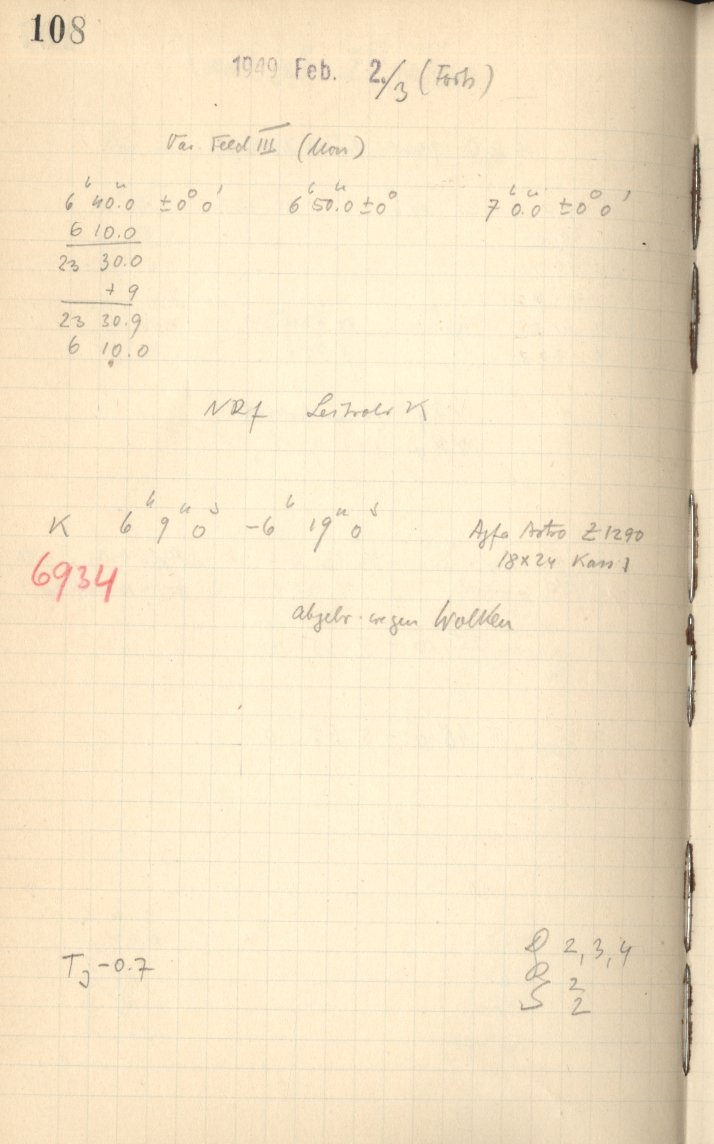 108
1949 Feb. 2./3 (Forts)
Var. Feld III (Mon)
6 h 40.0 m ±0° 0' 6 h 50.0 m ±0° 7 h 0.0 m ±0° 0'
6 10.0
23 30.0
+ 9
23 30.9
6 10.0
NRf K
K 6 h 9 m 0 s - 6 h 19 m 0 s Agfa Astro Z1290
6934 18x24 Kass 1
abgebr. wegen Wolken
T -0.7
2, 3, 4
2
S 2